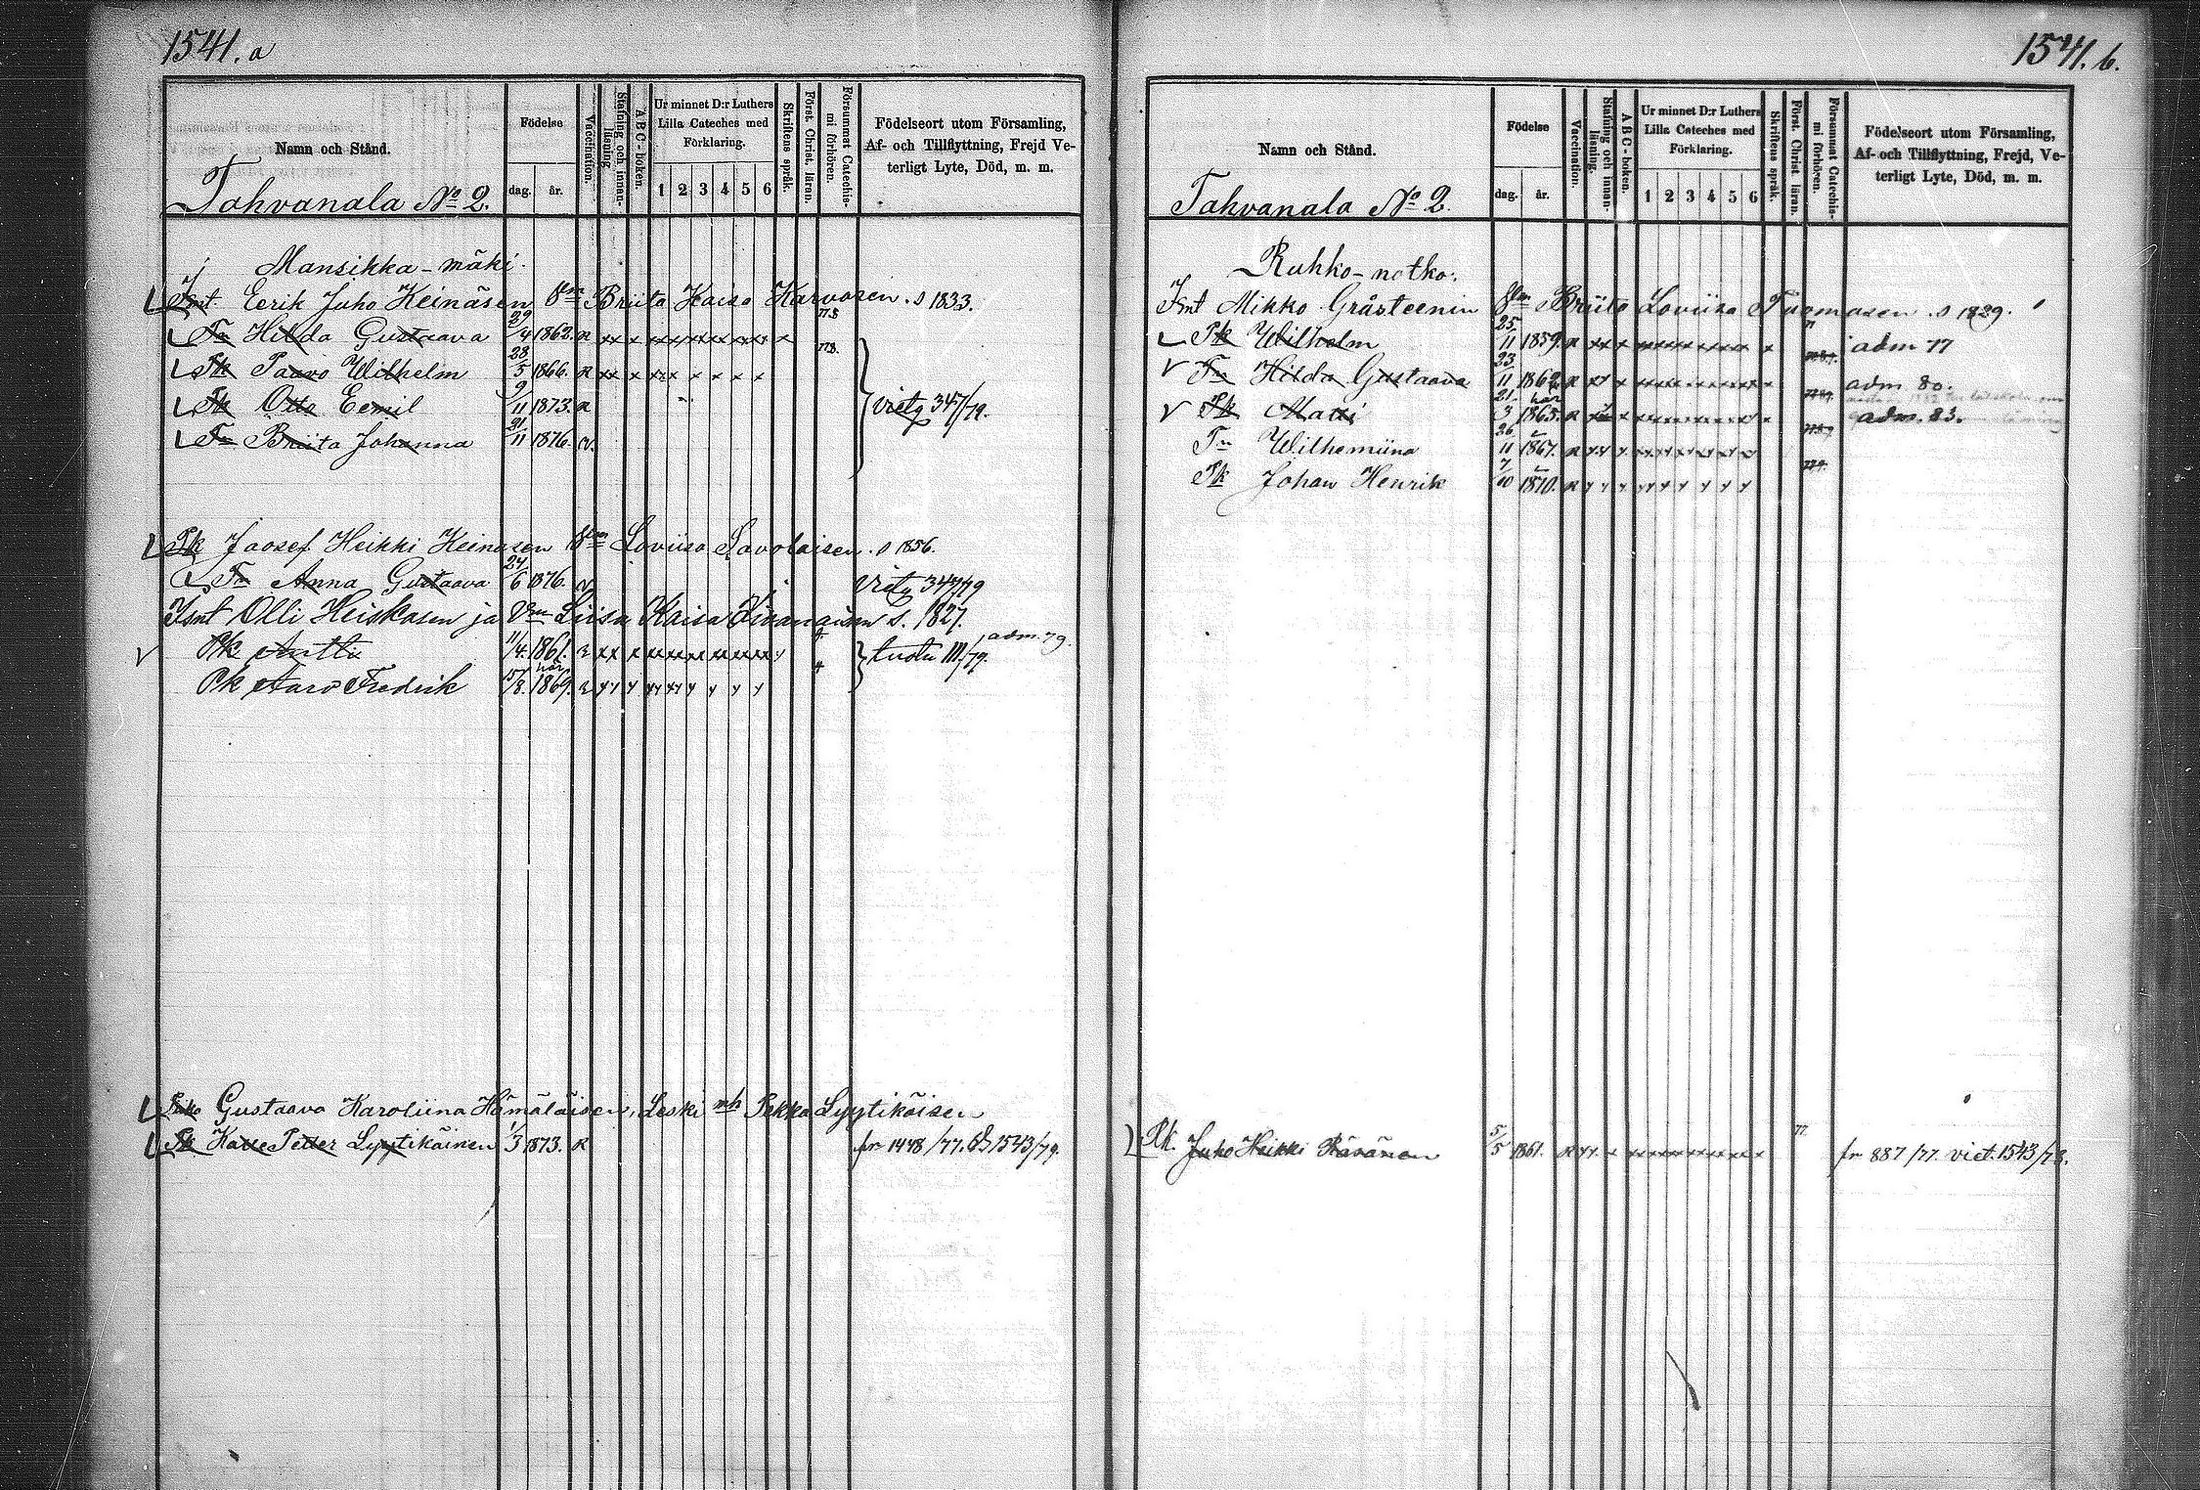 1541. a
Namn och Stånd.
Födelse
dag.
år.
Vaccination.
Stafning och innan-läsning.
A B C - boken.
Ur minnet D:r Luthers
Lilla Cateches med
Förklaring.
1 2 3 4 5 6
Skriftens språk.
Förest. Christ. läran.
Försummat Catechis-
mi förhören.
Födelseort utom Församling,
Af- och Tillflyttning, Frejd Ve-
terligt Lyte, Död, m. m.
Tahvanala No 2.
Mansikka-mäki.
Ismt. Eerik Juho Keinäsen Vm Briita Kaisa Karvosen. s 1833.
Tr Hilda Gustaava 29/4 1862. R xx x
Pk Paavo Wilhelm 28/5 1866. R xx x
Pk Otto Eemil 9/11 1873. R
Tr Briita Johanna 21/11 1876. v.
viety 347/79.
Pk Joosef Heikki Keinäsen Vm Loviisa Savolaisen. s 1856.
Tr Anna Gustaava 24/6 1876. v viety 347/79
Ismt Olli Heiskasen ja Vm Liisa Kaisa s. 1827.
Pk Antti 11/4. 1861. R xx x adm. 79.
tuotu 111/79.
Pk Aaro Fredrik 15/8. 1869. R
Gustaava Karoliina Hämäläisen, Leski mh Pekka Lyytikäisen
Pk Kalle Petter Lyytikäinen 1/3 1873. R fr 1448/77. 1543/79.
1541. b.
Namn och Stånd.
Födelse
dag.
år.
Vaccination.
Stafning och innan-läsning.
A B C - boken.
Ur minnet D:r Luthers
Lilla Cateches med
Förklaring.
1 2 3 4 5 6
Skriftens språk.
Förest. Christ. läran.
Försummat Catechis-
mi förhören.
Födelseort utom Församling,
Af- och Tillflyttning, Frejd, Ve-
terligt Lyte, Död, m. m.
Tahvanala No 2.
Ruhko-notko.
Ismt Mikko Gråsteenin Vm Briita Loviisa Turmasen. s 1829.
Pk Wilhelm 25/11 1859. R xx x adm 77
Tr Hilda Gustaava 23/11 1862 R adm 80.
Pk Matti 21/3 1865. R adm. 83.
Tr Wilhemiina 26/11 1867. R
Pk Johan Henrik 7/10 1870. R
Pk. Juho Heikki Räsänen 5/5 1861. R fr 887/77. viet. 1543/78.